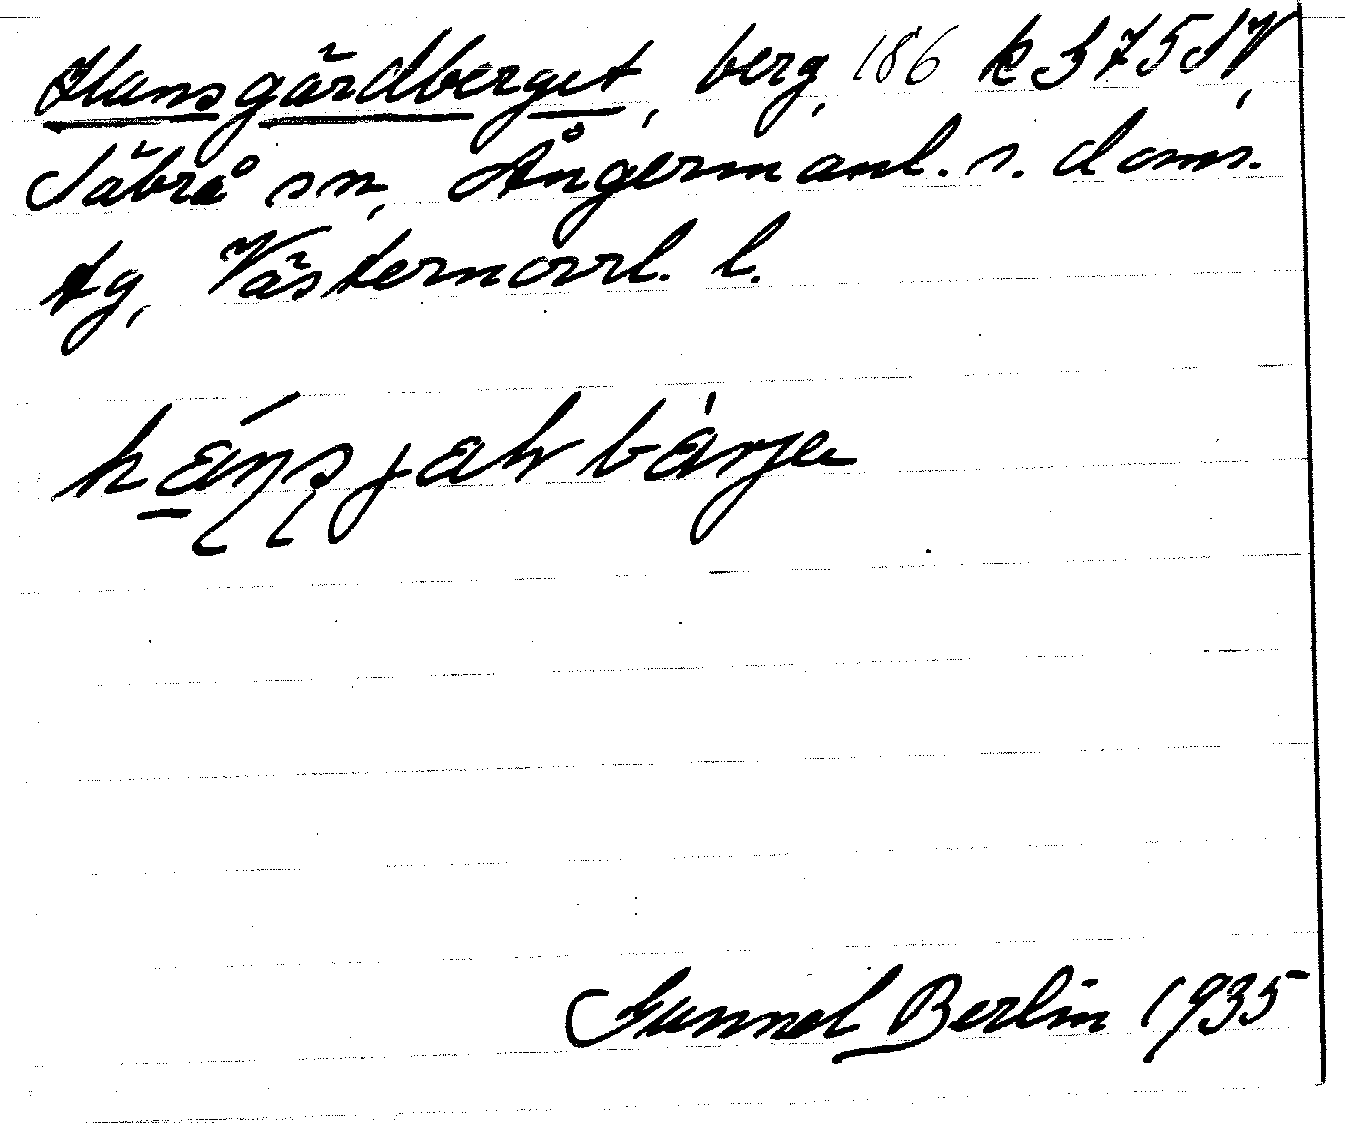 Hansgårdberget, berg, 186 k 375 SV,
Säbrå sn, Ångermanl. s. doms.
tg, Västernorrl. l.
Gunnel Berlin 1935